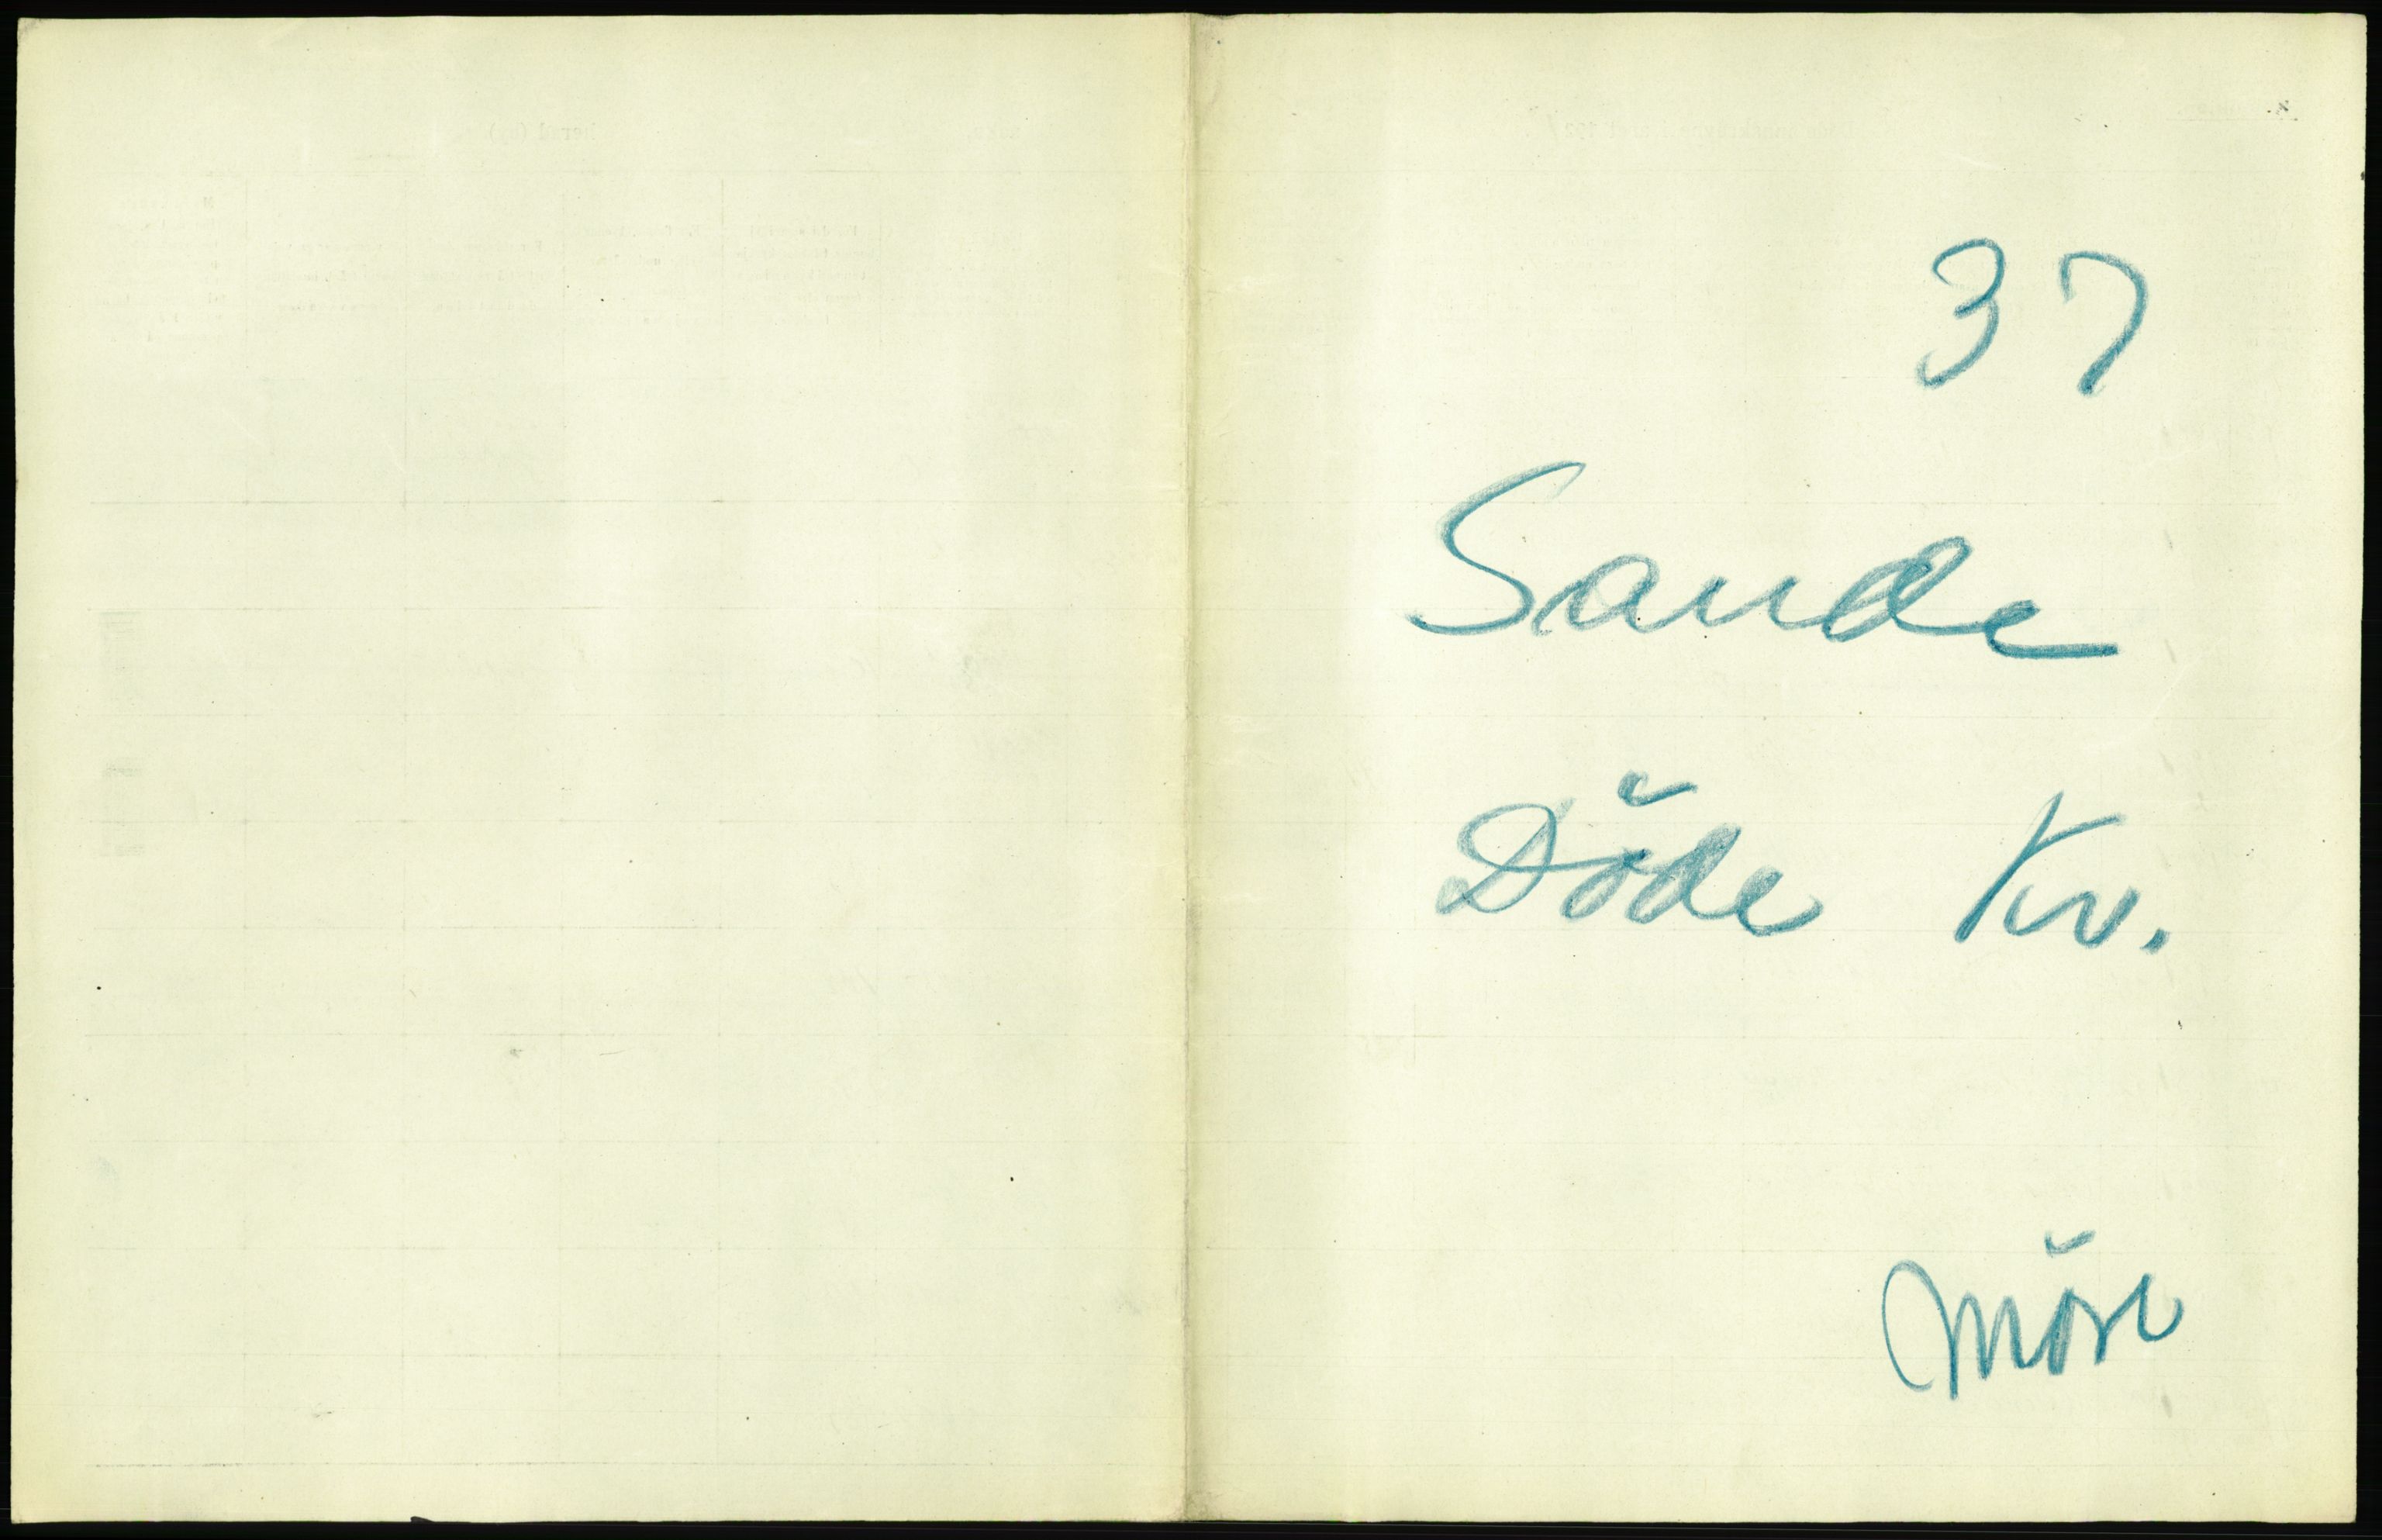 37
Sande
Döde Kv.
Möre